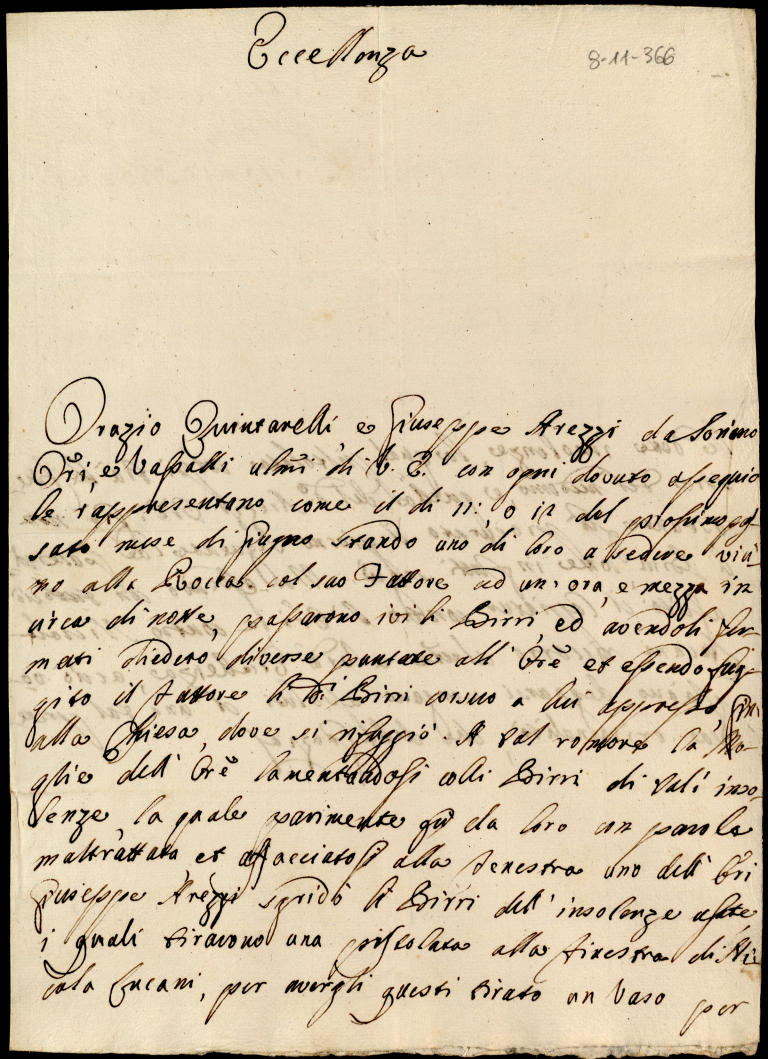 Eccellenza
8-11-366
Orazio Quintarelli e Giuseppe Arezzi da Soriano
Ori, e Vassalli umi di V. E. con ogni dovuto ossequio
le rappresentano come il di 11: o 12 del prossimo pas
sato mese di Giugno stando uno di loro a sedere vici
no alla Rocca col suo Fattore ad un'ora, e mezza in
circa di notte, passarono ivi li Birri, ed avendoli fer
mati diedero diverse puntate all' Ore et essendo fug
gito il Fattore li di Birri corsero a lui appresso, fin
alla Chiesa, dove si rifuggiò. A tal romore la Mo
glie dell' Ore lamentandosi colli Birri di tali inso
lenze la quale parimente fù da loro con parole
maltrattata et affacciatosi alla fenestra uno dell' Ori
Giuseppe Arezzi sgridò li Birri dell' insolenze usate,
i quali tirarono una pistolata alla finestra di Ni
cola Lucani, per avergli questi tirato un Vaso per